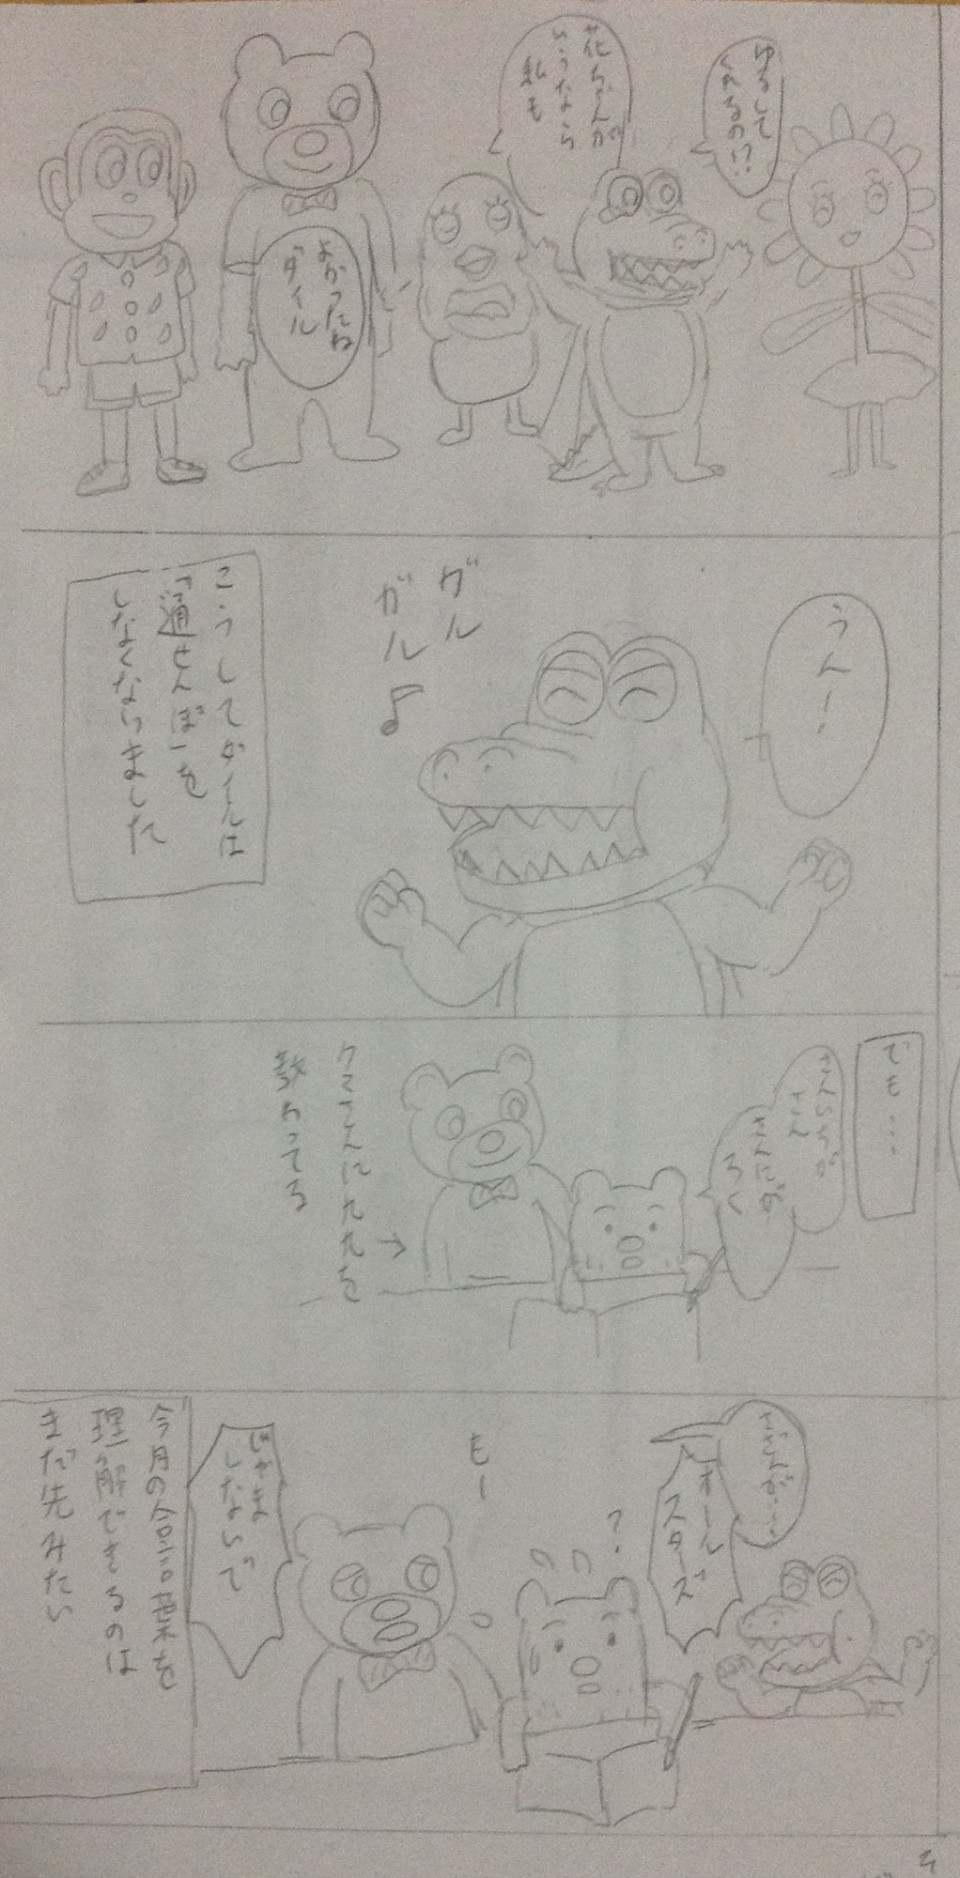 ゆるして
くれるの!?
花ちゃんが
いうなら
私も
よかったね
ダイル
うんー!
グル
ガル♪
こうしてダイルは
「通せんぼ」を
しなくなりました
でも……
さんちが
さん
さんにが
ろく
クマさんに九九を
教わってる
ござんが……
オール
スターズ
?
もー
じゃま
しないで
今月の合言葉を
理解できるのは
まだ先みたい